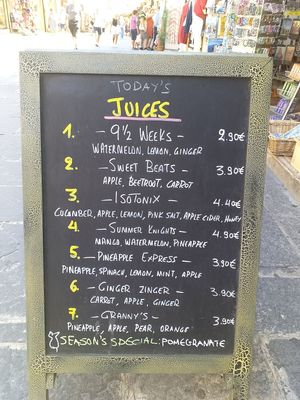 TODAY'S
JUICES
1. — 9½ WEEKS — 2.90€
WATERMELON, LEMON, GINGER
2. — SWEET BEATS — 3.90€
APPLE, BEETROOT, CARROT
3. — ISOTONIX — 4.40€
CUCUMBER, APPLE, LEMON, PINK SALT, APPLE CIDER, HONEY
4. — SUMMER KNIGHTS — 4.90€
MANGO, WATERMELON, PINEAPPLE
5. — PINEAPPLE EXPRESS — 3.90€
PINEAPPLE, SPINACH, LEMON, MINT, APPLE
6. — GINGER ZINGER — 3.90€
CARROT, APPLE, GINGER
7. — GRANNY'S — 3.90€
PINEAPPLE, APPLE, PEAR, ORANGE
SEASON'S SPECIAL: POMEGRANATE